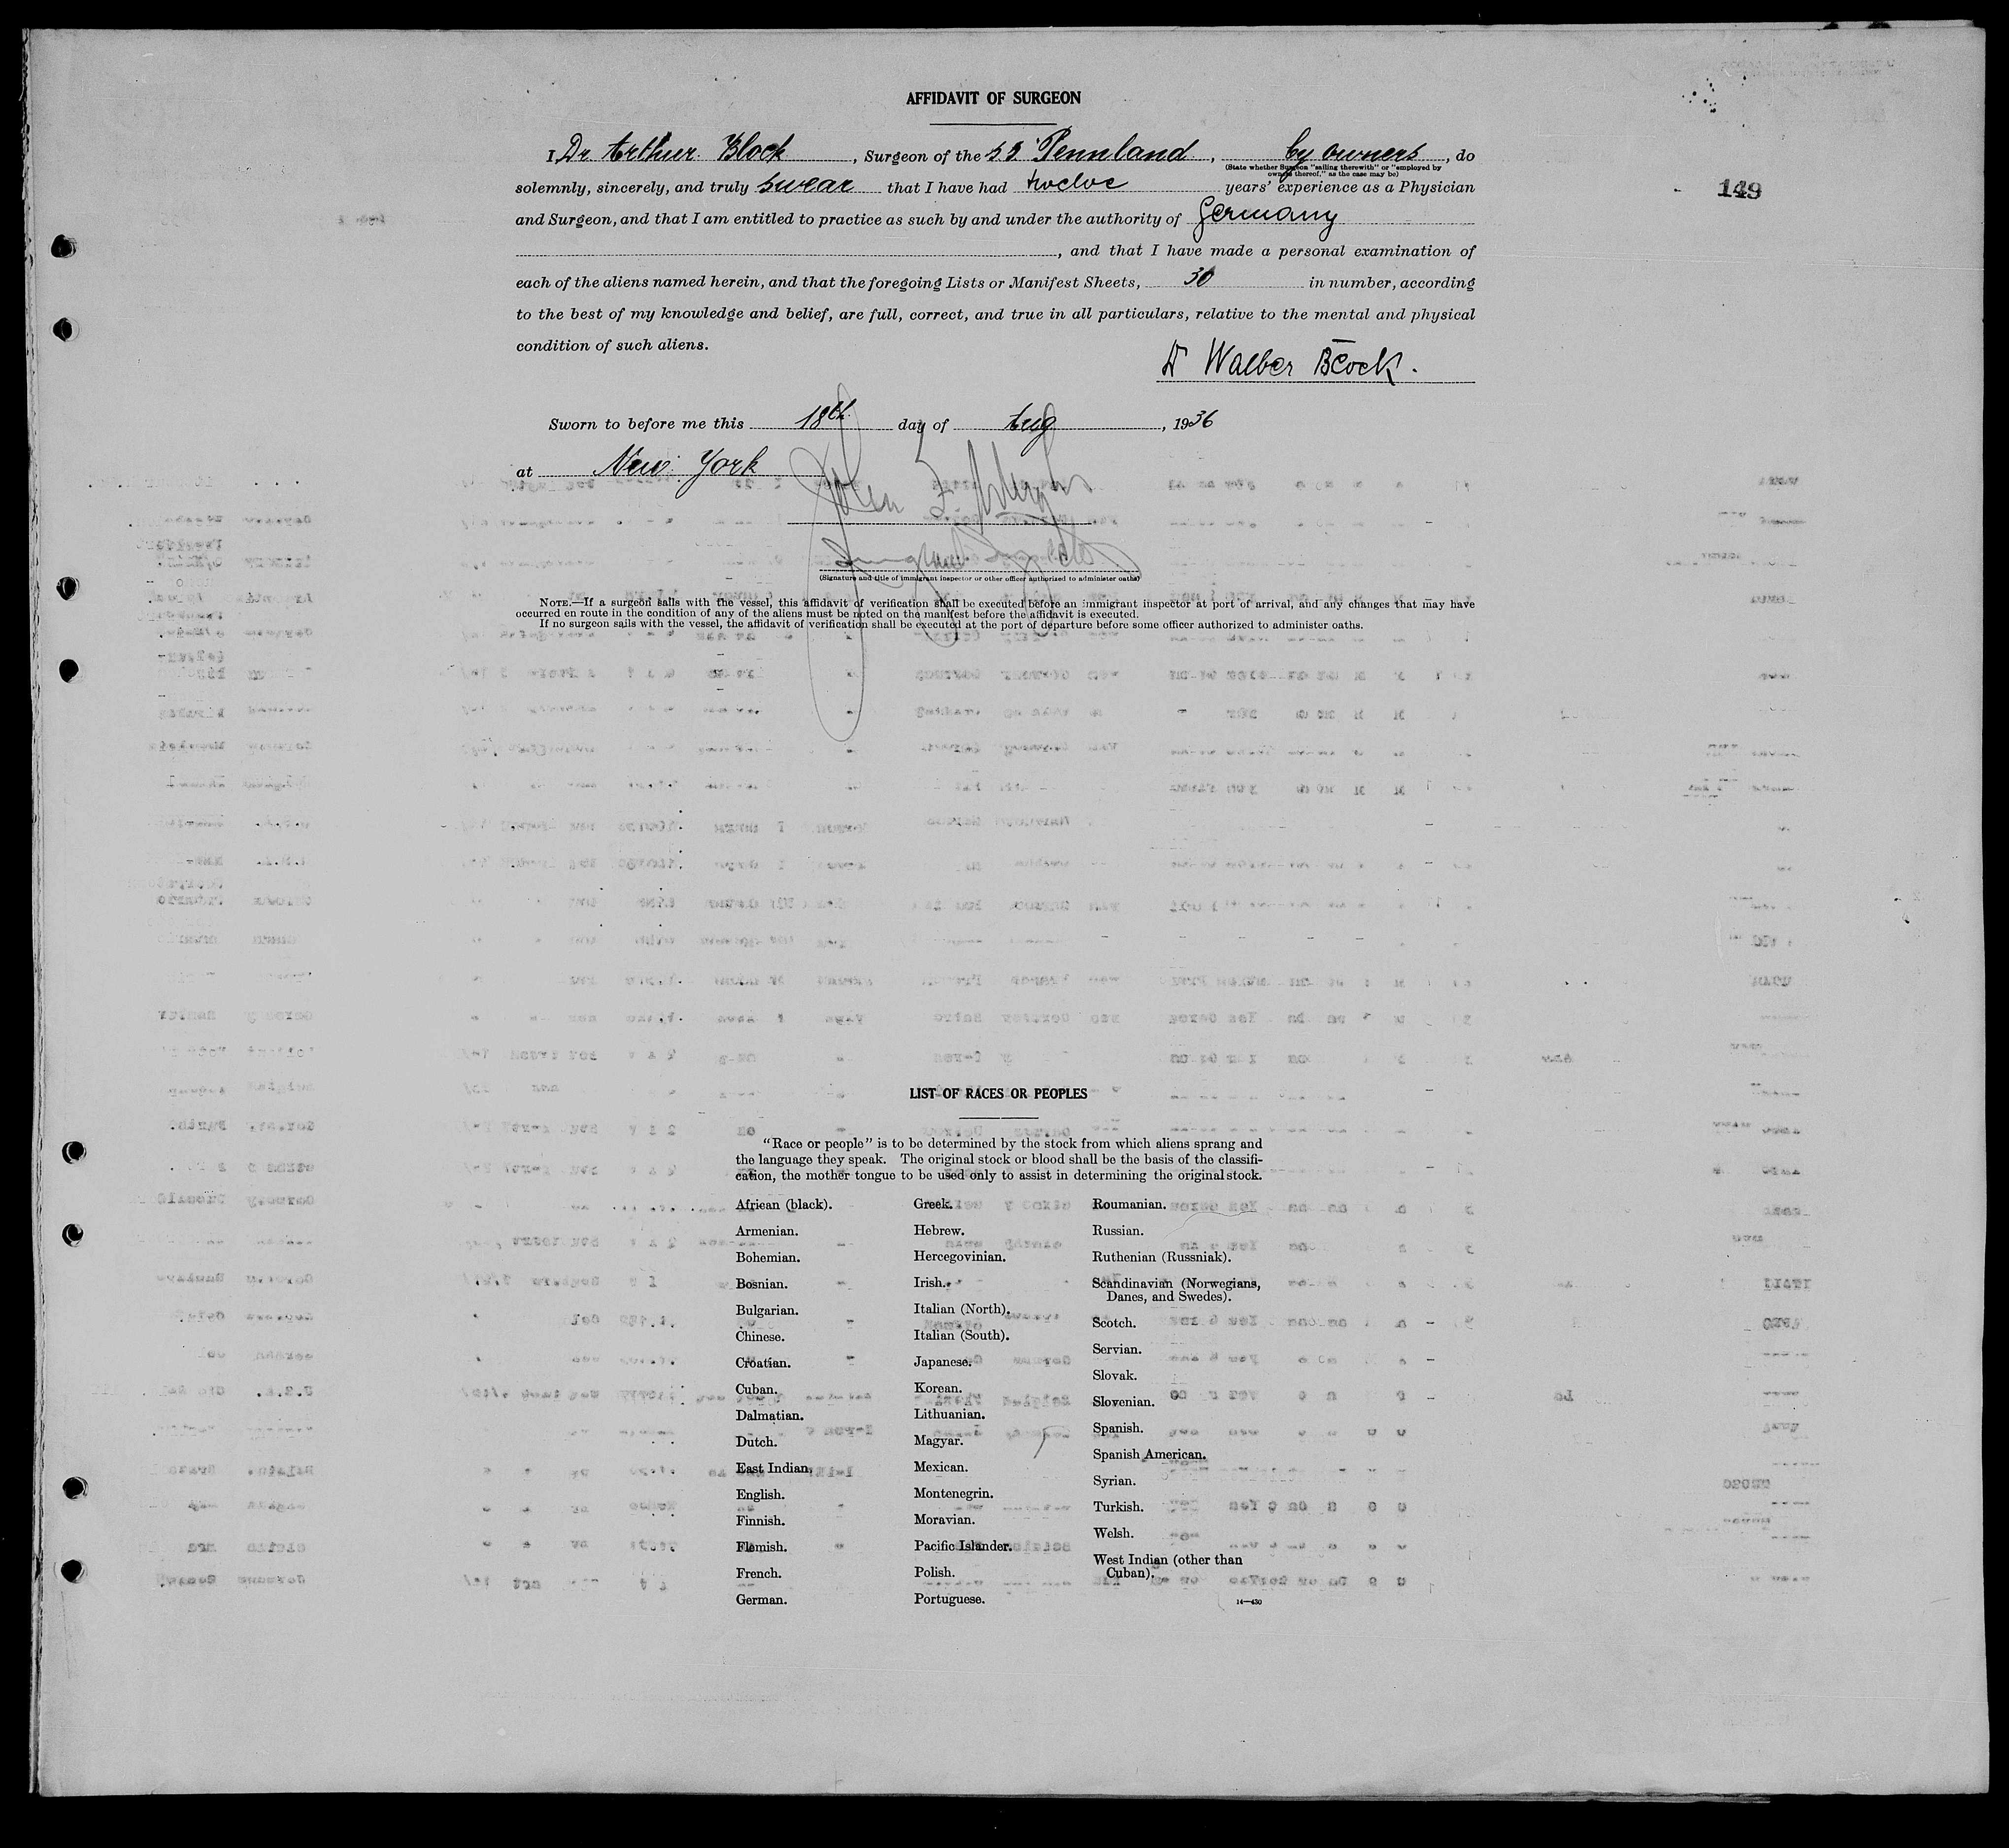 AFFIDAVIT OF SURGEON
I, Dr. Arthur Block, Surgeon of the SS. Pennland, by owners, do
(State whether Surgeon "sailing therewith" or "employed by
owners thereof," as the case may be)
solemnly, sincerely, and truly swear that I have had twelve years' experience as a Physician
149
and Surgeon, and that I am entitled to practice as such by and under the authority of Germany
, and that I have made a personal examination of
each of the aliens named herein, and that the foregoing Lists or Manifest Sheets, 30 in number, according
to the best of my knowledge and belief, are full, correct, and true in all particulars, relative to the mental and physical
condition of such aliens.
Block.
Sworn to before me this 18th day of Aug, 1936
at New York
John F.
(Signature and title of immigrant inspector or other officer authorized to administer oaths)
NOTE.—If a surgeon sails with the vessel, this affidavit of verification shall be executed before an immigrant inspector at port of arrival, and any changes that may have
occurred en route in the condition of any of the aliens must be noted on the manifest before the affidavit is executed.
If no surgeon sails with the vessel, the affidavit of verification shall be executed at the port of departure before some officer authorized to administer oaths.
LIST OF RACES OR PEOPLES
"Race or people" is to be determined by the stock from which aliens sprang and
the language they speak. The original stock or blood shall be the basis of the classifi-
cation, the mother tongue to be used only to assist in determining the original stock.
African (black).
Armenian.
Bohemian.
Bosnian.
Bulgarian.
Chinese.
Croatian.
Cuban.
Dalmatian.
Dutch.
East Indian.
English.
Finnish.
Flemish.
French.
German.
Greek.
Hebrew.
Hercegovinian.
Irish.
Italian (North).
Italian (South).
Japanese.
Korean.
Lithuanian.
Magyar.
Mexican.
Montenegrin.
Moravian.
Pacific Islander.
Polish.
Portuguese.
Roumanian.
Russian.
Ruthenian (Russniak).
Scandinavian (Norwegians,
Danes, and Swedes).
Scotch.
Servian.
Slovak.
Slovenian.
Spanish.
Spanish American.
Syrian.
Turkish.
Welsh.
West Indian (other than
Cuban).
14—430